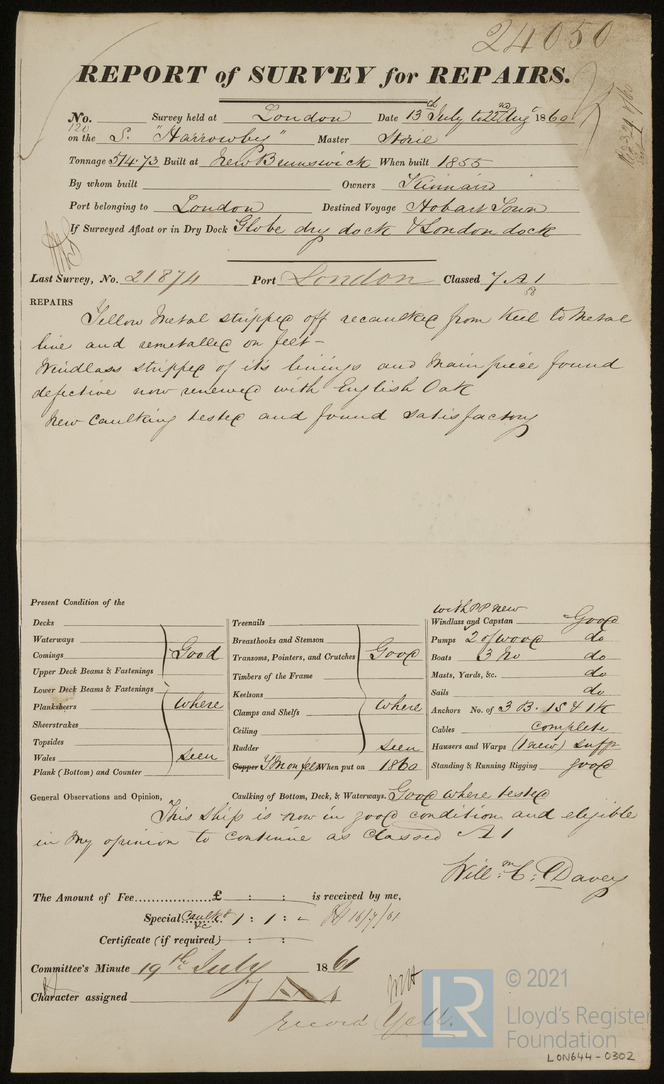 24050
REPORT of SURVEY for REPAIRS.
No. Survey held at London Date 13th July to 22nd Augt 1860
120
on the S. "Harrowby" Master Storie
Tonnage 514.73 Built at New Brunswick When built 1855
By whom built Owners Kinnaird
Port belonging to London Destined Voyage Hobart Town
If Surveyed Afloat or in Dry Dock Globe dry dock & London dock
Last Survey, No. 21874 Port London Classed 7 A 1
58
REPAIRS
Yellow Metal stripped off recaulked from Keel to Metal
line and remetalled on felt-
Windlass stripped of its linings and Mainpiece found
defective now renewed with English Oak
New Caulking tested and found satisfactory
Present Condition of the
Decks
Waterways
Comings
Upper Deck Beams & Fastenings
Lower Deck Beams & Fastenings
Planksheers
Sheerstrakes
Topsides
Wales
Plank (Bottom) and Counter
Good
where
seen
Treenails
Breasthooks and Stemson
Transoms, Pointers, and Crutches
Timbers of the Frame
Keelsons
Clamps and Shelfs
Ceiling
Rudder
Good
where
seen
Copper YM on felt When put on 1860
with PP new
Windlass and Capstan Good
Pumps 2 of wood do
Boats 3 No do
Masts, Yards, &c. do
Sails do
Anchors No. of 3 B. 1S & 1K
Cables complete
Hausers and Warps (1 new) sufft
Standing & Running Rigging good
General Observations and Opinion, Caulking of Bottom, Deck, & Waterways. Good where tested
This Ship is now in good condition and eligible
in my opinion to continue as classed A 1
Willm. C. Davey
The Amount of Fee £ : : is received by me,
Special Caulkg &c 1 : 1 : - 16/7/61
Certificate (if required) : :
Committee's Minute 19th July 1861
Character assigned 7 A 1
record
© 2021
LR
Lloyd's Register
Foundation
LON644-0302